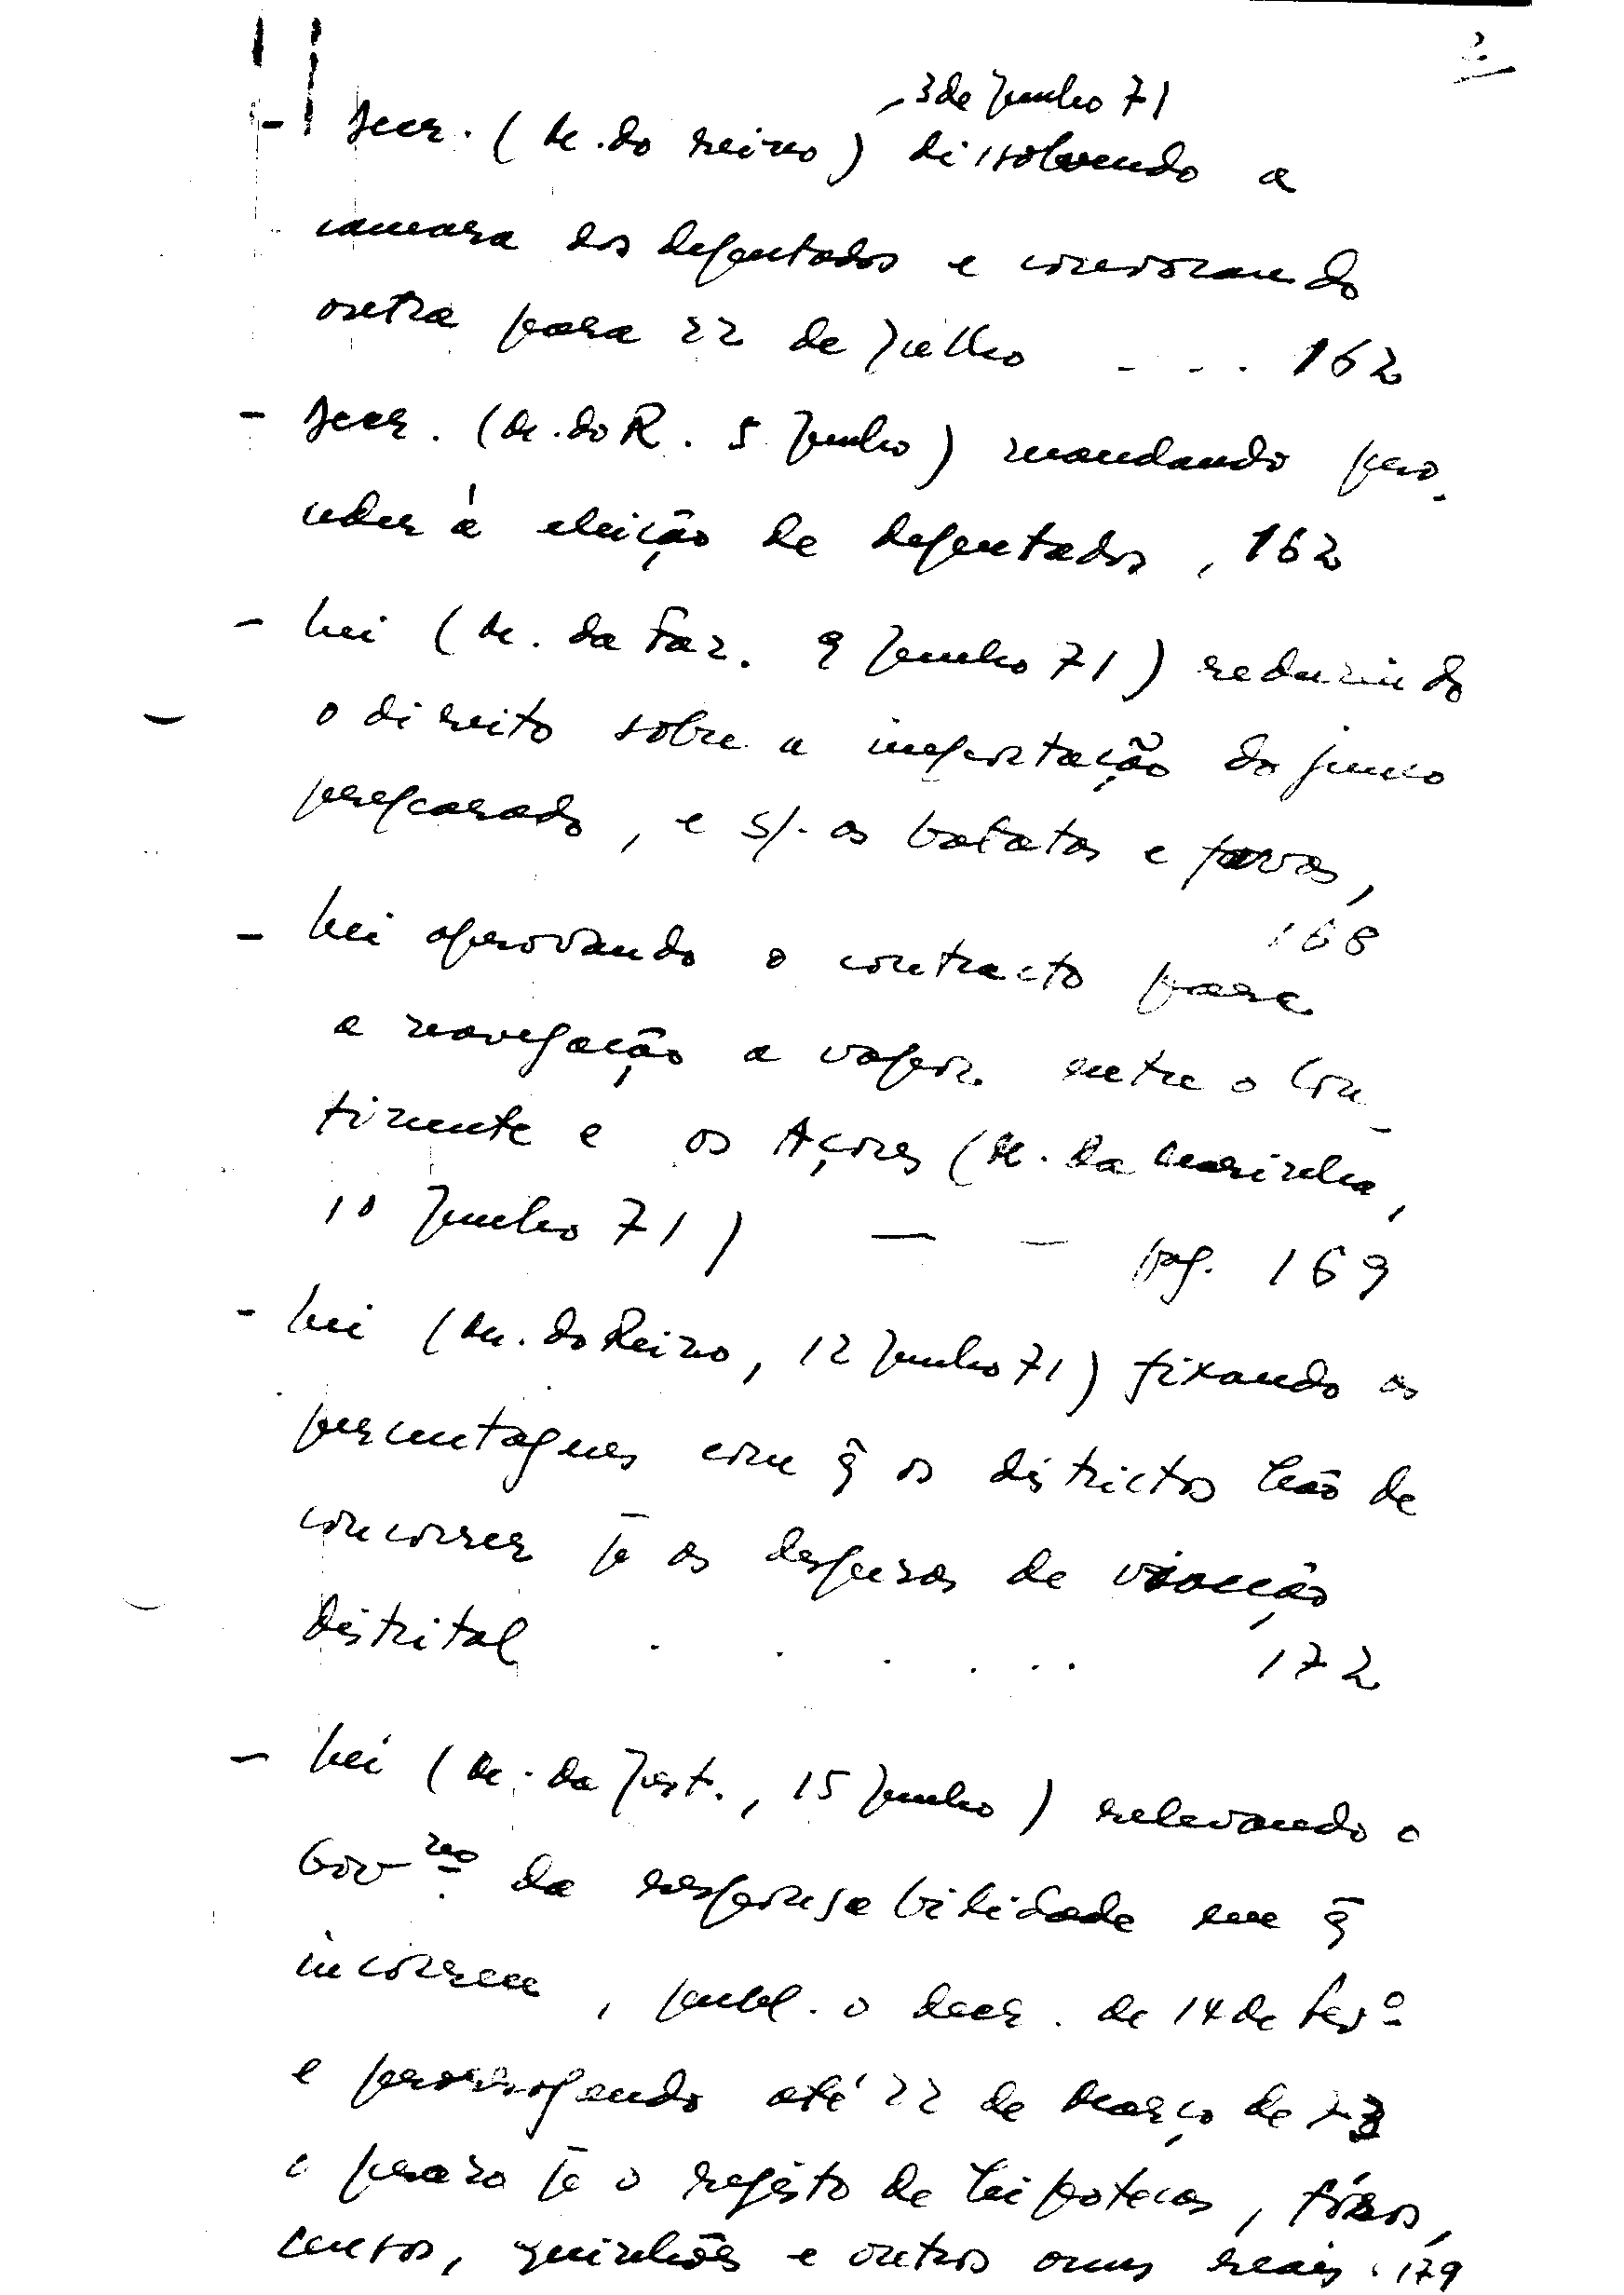 2.
, 3 de Junho 71
- Decr. (M. do reino) dissolvendo a
camara dos deputados e convocando
outra para 22 de Julho - - . . 162
- Decr. (M. do R. 5 Junho) mandando pro-
ceder à eleição de deputados, 162
- Lei (M. da Faz. 9 Junho 71) reduzindo
o direito sobre a importação do junco
preparado, e s/. as batatas e favas,
168
- Lei aprovando o contracto para
a navegação a vapor entre o Con-
tinente e os Açores (M. da Marinha,
10 Junho 71) — - pag. 169
- Lei (M. do Reino, 12 Junho 71) fixando as
percentagens com q̃ os districtos hão de
concorrer p̄a as despesas de viação
distrital . . . . . . 172
- Lei (M. da Just., 15 Junho) relevando o
Govno. da responsabilidade em q̃
incorreu, publ. o decr. de 14 de Fevº
e prorrogando até 22 de Março de 73
o prazo p̄a o registo de hipotecas, fóros,
censos, quinhões e outros onus reais. 179